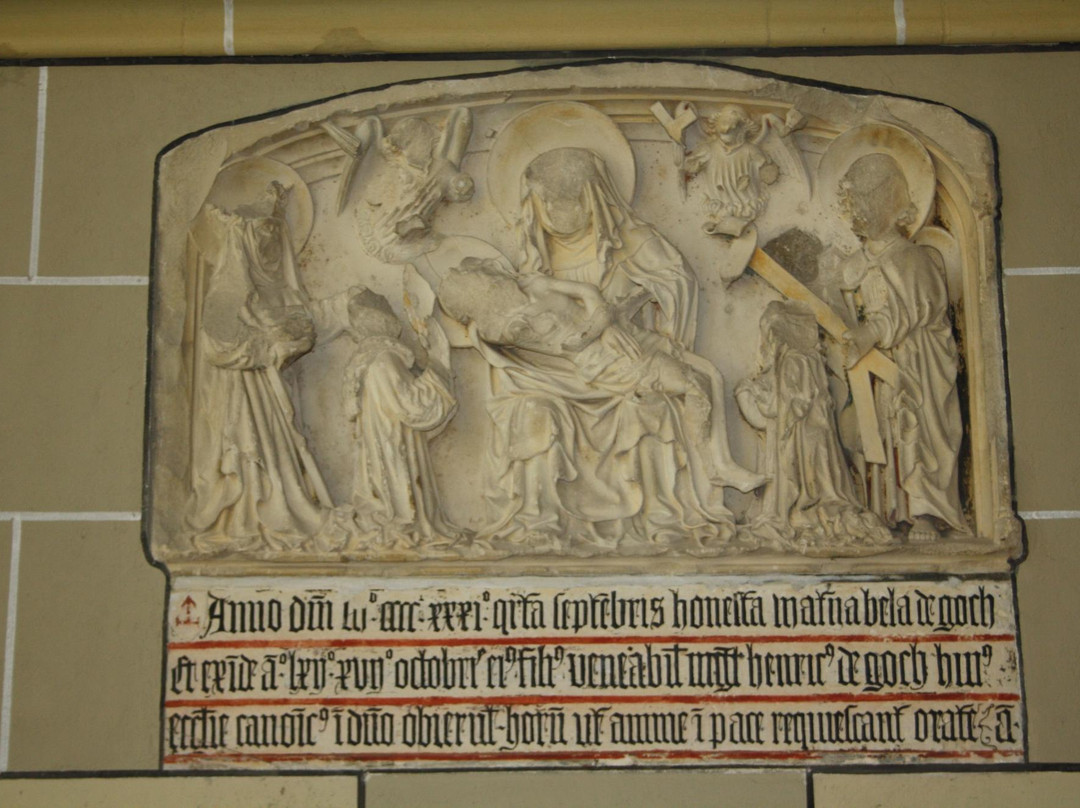 Anno dm̄ mº cccc xxxi º qrta septēbris honesta matrīa bela de goch
Et exīde aº lxijº xvijº octobris ei⁹ fili⁹ venēabil' mgr̄ henric⁹ de goch hui⁹
ecctīe canōic⁹ ī dn̄o obierūt horū ut anime ī pace requiescant orate